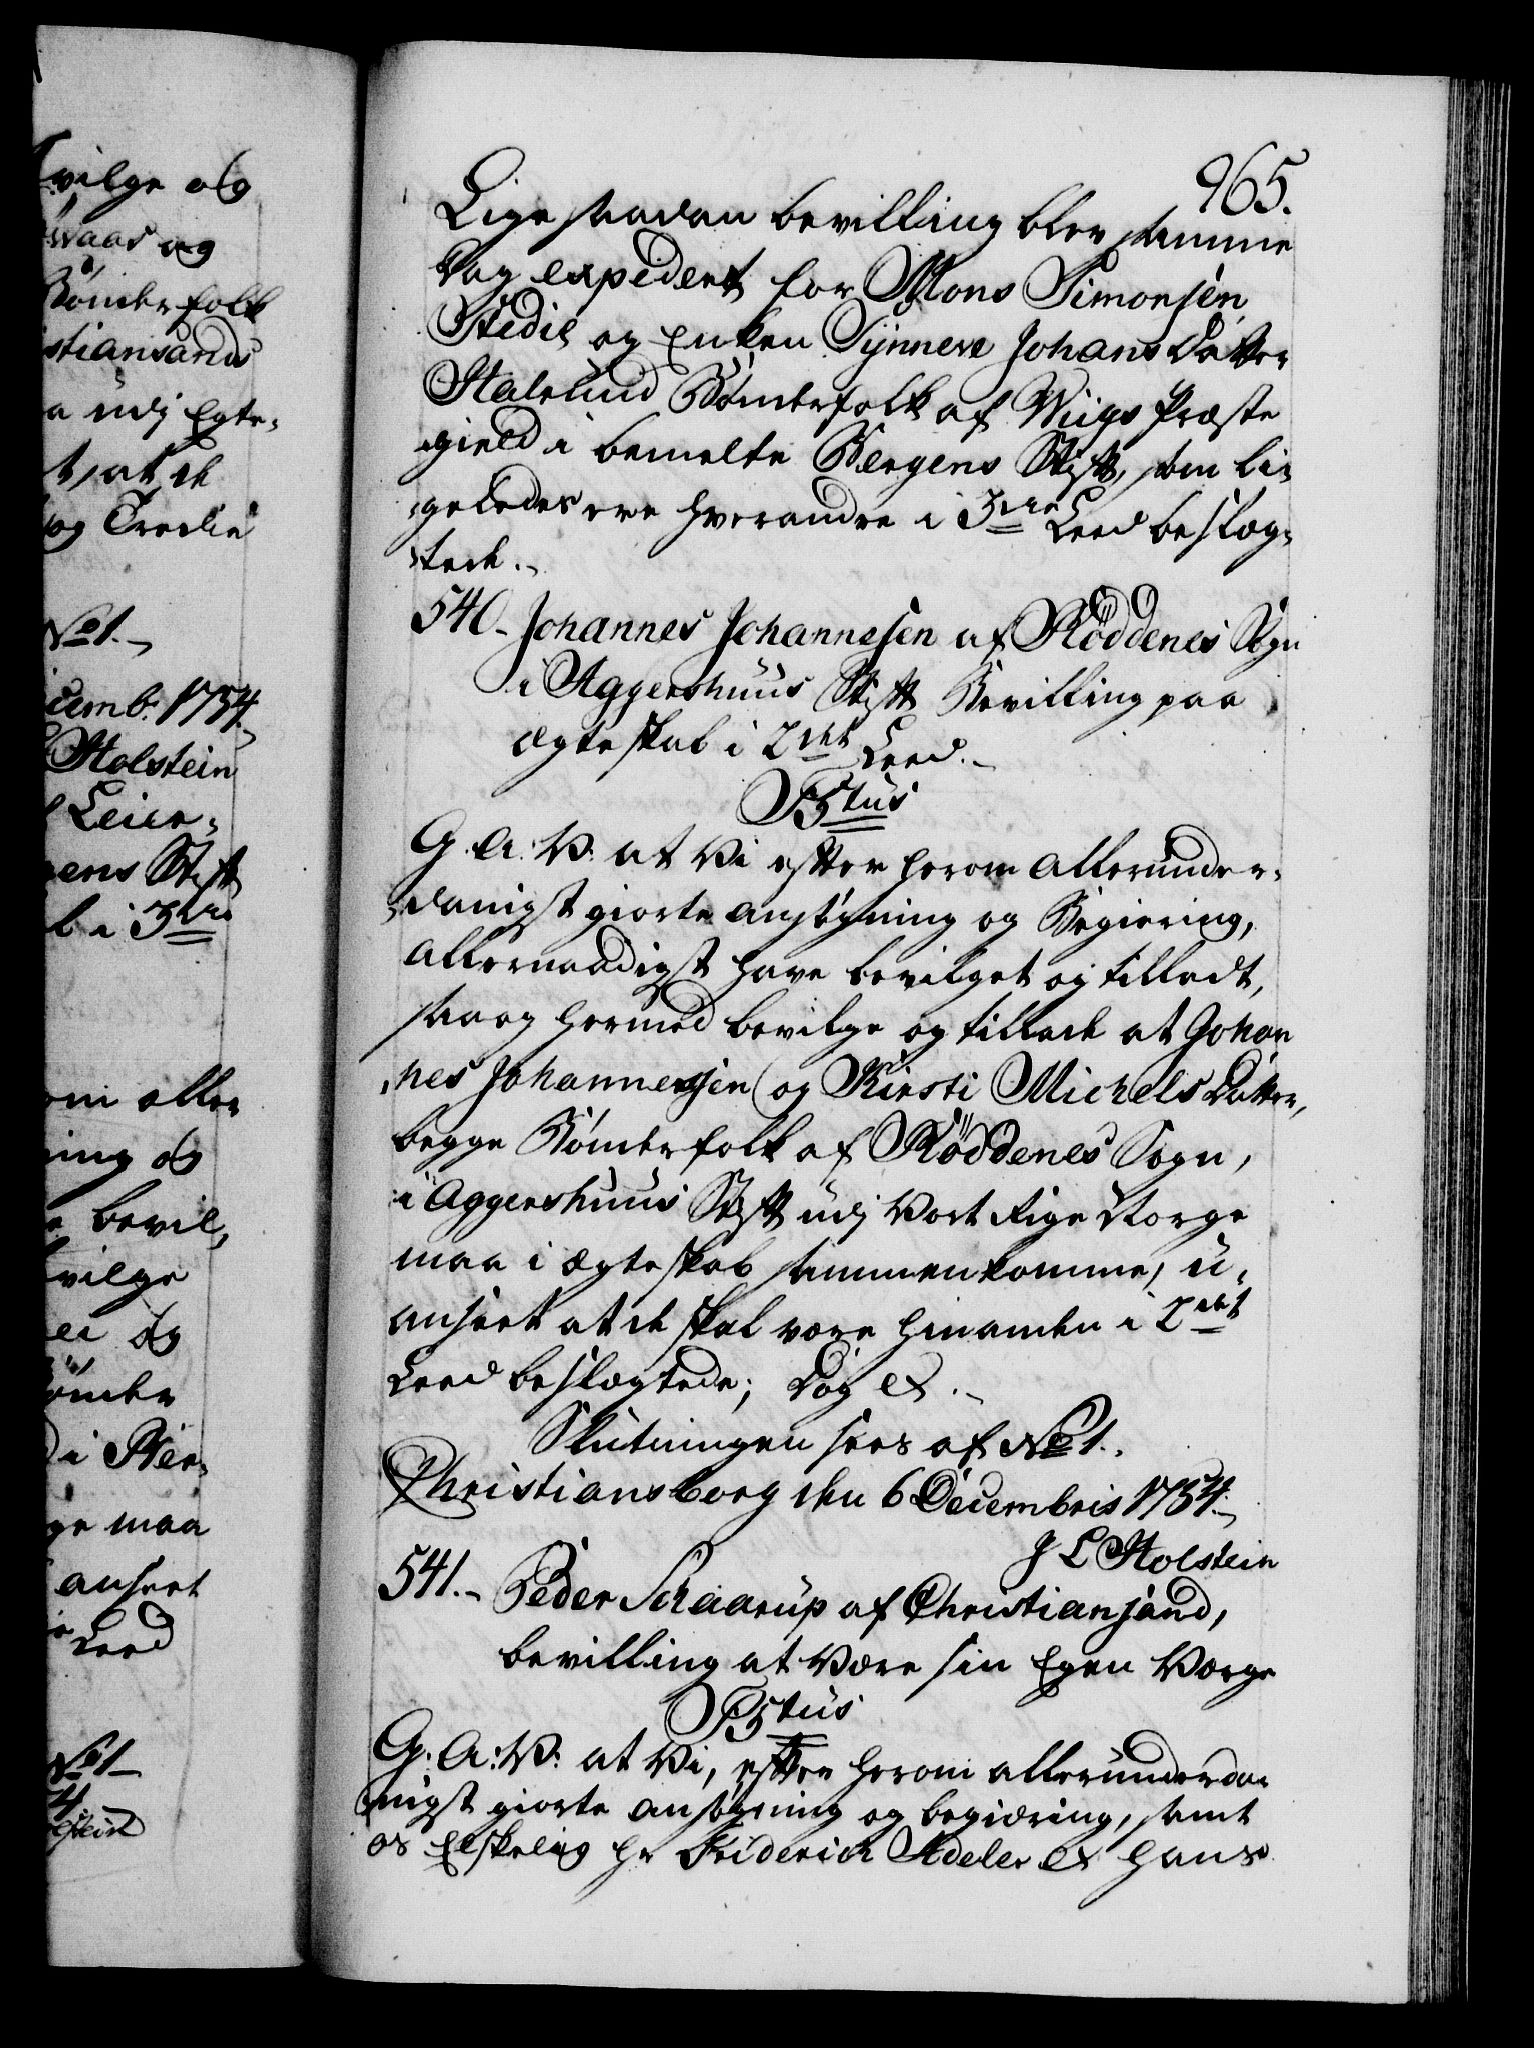 vilge og
Waas og
Bönderfolk
stiansands
a udj Egte-
t, at de
og Tredie
No 1.
cemb: 1734.
Holstein
Leier-
gens Stift
l i 3die
om aller
ning og
e bevil,
vilge
ei og
Bönder
i Ber-
ge maa
anseet
Leed
No 1
4
lstein
965.
Lige saadan bevilling blev samme
Dag expederet for Mons Simonsen
Stedie og Enken Synneve Johans Datter
Stalelund Bönderfolk af Wiigs Præste
gield i bemelte Bergens Stift, som li-
geledes ere hverandre i 3die Leed beslæg-
tede.
540. Johannes Johannesen af Röddenes Sogn
i Aggershuus Stift Bevilling paa
Ægteskab i 2det Leed.
C 5tus
G. A: V: at Vi efter herom allerunder-
danigst giorte ansögning og Begiering,
allernaadigst have bevilget og tilladt,
saa og hermed bevilge og tillade at Johan
nes Johannesen og Kirsti Michels Datter,
begge Bönderfolk af Röddenes Sogn,
i Aggershuus Stift udj Vort Rige Norge
maa i Ægteskab sammenkomme, u-
anseet at de skal være hinanden i 2det
Leed beslægtede; Dog &.
Slutningen sees af No 1.
Christiansborg den 6 Decembris 1734.
J L Holstein
541. Peder Schaarup af Christiansand,
bevilling at Være sin Egen Værge
C 5tus
G: A: V: at Vi, efter herom allerunderda-
nigst giorte ansögning og begiæring, samt
os Elskelig Hr Friderich Adeler & hans